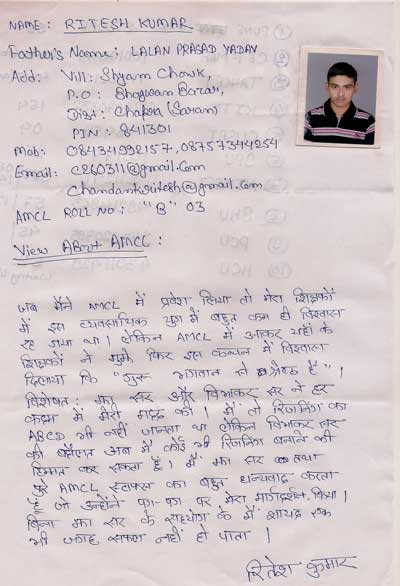 NAME: RITESH KUMAR
Father's Name: LALAN PRASAD YADAV
Add: Vill: Shyam Chowk,
P.O: Bhagwan Bazar,
Dist: Chapra (Saran)
PIN: 841301
Mob: 08434992157, 08757344954
Email: c260311@gmail.com
chandankritesh@gmail.com
AMCL ROLL NO: "B" 03
View About AMCL:
जब मैंने AMCL में प्रवेश लिया तो मेरा शिक्षकों
में इस व्यवसायिक युग में बहुत कम ही विश्वास
रह गया था। लेकिन AMCL में आकर यहाँ के
शिक्षकों ने मुझे फिर इस कथन में विश्वास
दिलाया कि "गुरू भगवान से श्रेष्ठ हैं"।
विशेषत: झा सर और विभाकर सर ने हर
कदम में मेरी मदद की। मैं तो रिजनिंग का
ABCD भी नहीं जानता था लेकिन विभाकर सर
की बदौलत अब में कोई भी रिजनिंग बनाने की
हिम्मत कर सकता हूँ। मैं झा सर तथा
पूरे AMCL स्टाफस का बहुत धन्यवाद करता
हूँ जो उन्होंने पग-पग पर मेरा मार्गदर्शन किया।
बिना झा सर के सहयोग के मैं शायद एक
भी जगह सफल नहीं हो पाता।
रितेश कुमार